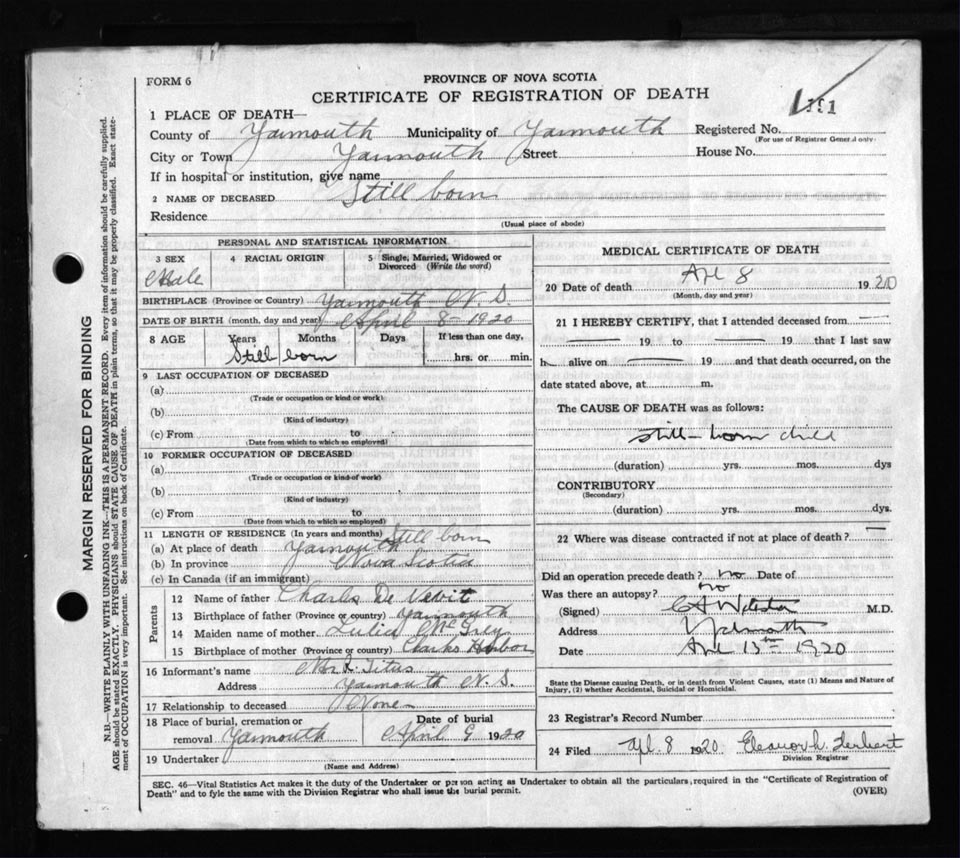 FORM 6
PROVINCE OF NOVA SCOTIA
CERTIFICATE OF REGISTRATION OF DEATH
1 PLACE OF DEATH—
County of Yarmouth Municipality of Yarmouth Registered No. 191
(For use of Registrar General only)
City or Town Yarmouth Street House No.
If in hospital or institution, give name
2 NAME OF DECEASED Still born
Residence
(Usual place of abode)
PERSONAL AND STATISTICAL INFORMATION
3 SEX 4 RACIAL ORIGIN 5 Single, Married, Widowed or Divorced (Write the word)
Male
BIRTHPLACE (Province or Country) Yarmouth N. S.
DATE OF BIRTH (month, day and year) April 8 - 1920
8 AGE Years Months Days If less than one day,
Still born hrs. or min.
9 LAST OCCUPATION OF DECEASED
(a)
(Trade or occupation or kind or work)
(b)
(Kind of industry)
(c) From to
(Date from which to which so employed)
10 FORMER OCCUPATION OF DECEASED
(a)
(Trade or occupation or kind of work)
(b)
(Kind of industry)
(c) From to
(Date from which to which so employed)
11 LENGTH OF RESIDENCE (In years and months) Still born
(a) At place of death Yarmouth
(b) In province Nova Scotia
(c) In Canada (if an immigrant)
Parents
12 Name of father Charles De Vevit
13 Birthplace of father (Province or country) Yarmouth
14 Maiden name of mother
15 Birthplace of mother (Province or country) Clarks Harbor
16 Informant's name Titus
Address Yarmouth N. S.
17 Relationship to deceased None
18 Place of burial, cremation or removal Yarmouth Date of burial April 9 1920
19 Undertaker
(Name and Address)
MEDICAL CERTIFICATE OF DEATH
20 Date of death Apl 8 1920
(Month, day and year)
21 I HEREBY CERTIFY, that I attended deceased from —
— 19 to — 19 that I last saw
h— alive on — 19 and that death occurred, on the
date stated above, at m.
The CAUSE OF DEATH was as follows:
still-born child
(duration) yrs. mos. dys
CONTRIBUTORY
(Secondary)
(duration) yrs. mos. dys.
22 Where was disease contracted if not at place of death? —
Did an operation precede death? no Date of
Was there an autopsy? no
(Signed) M.D.
Address Yarmouth
Date Apl 13th 1920
State the Disease causing Death, or in death from Violent Causes, state (1) Means and Nature of
Injury, (2) whether Accidental, Suicidal or Homicidal.
23 Registrar's Record Number
24 Filed Apl. 8 1920 Eleanor h. Herbert
Division Registrar
SEC. 46—Vital Statistics Act makes it the duty of the Undertaker or person acting as Undertaker to obtain all the particulars required in the "Certificate of Registration of
Death" and to fyle the same with the Division Registrar who shall issue the burial permit.
(OVER)
MARGIN RESERVED FOR BINDING
N.B.—WRITE PLAINLY WITH UNFADING INK—THIS IS A PERMANENT RECORD. Every item of information should be carefully supplied.
AGE should be stated EXACTLY. PHYSICIANS should STATE CAUSE OF DEATH in plain terms, so that it may be properly classified. Exact state-
ment of OCCUPATION is very important. See instructions on back of Certificate.